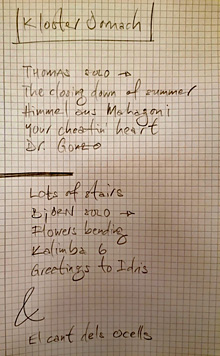 Kloster Dornach
THOMAS SOLO →
The closing down of summer
Himmel aus Mahagoni
Your cheatin heart
Dr. Gonzo
Lots of stairs
BJØRN SOLO →
Flowers bending
Kalimba 6
Greetings to Idris
&
El cant dels ocells